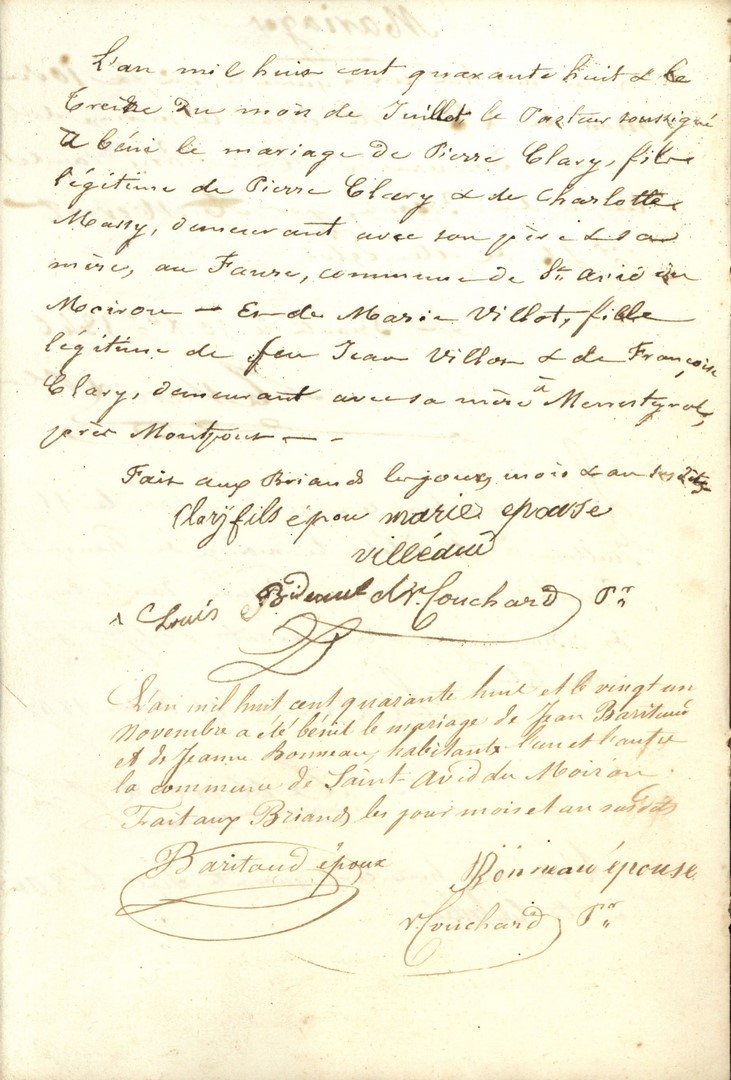 L'an mil huit cent quarante huit & le
treize du mois de Juillet le Pasteur soussigné
a béni le mariage de Pierre Clary, fils
légitime de Pierre Clary & de Charlotte
Massy, demeurant avec son père & sa
mère, au Faure, commune de St. Avid du
Moiron — Et de Marie Villot, fille
légitime de feu Jean Villot & de Françoise
Clary, demeurant avec sa mère à Menesteyrol,
près Montpont — -
Fait aux Briands les jour, mois & an susdits
Clarÿ fils épou marie epouse
villéaud
Louis Bideaut Couchard Pr
L'an mil huit cent quarante huit et le vingt un
novembre a été bénit le mariage de Jean Baritaud
et de Jeanne Bonneau, habitants l'un et l'autre
la commune de Saint-Avid du Moiron.
Fait aux Briands les jour mois et an susdits
Baritaud époux
Bonneau épouse
Couchard Pr